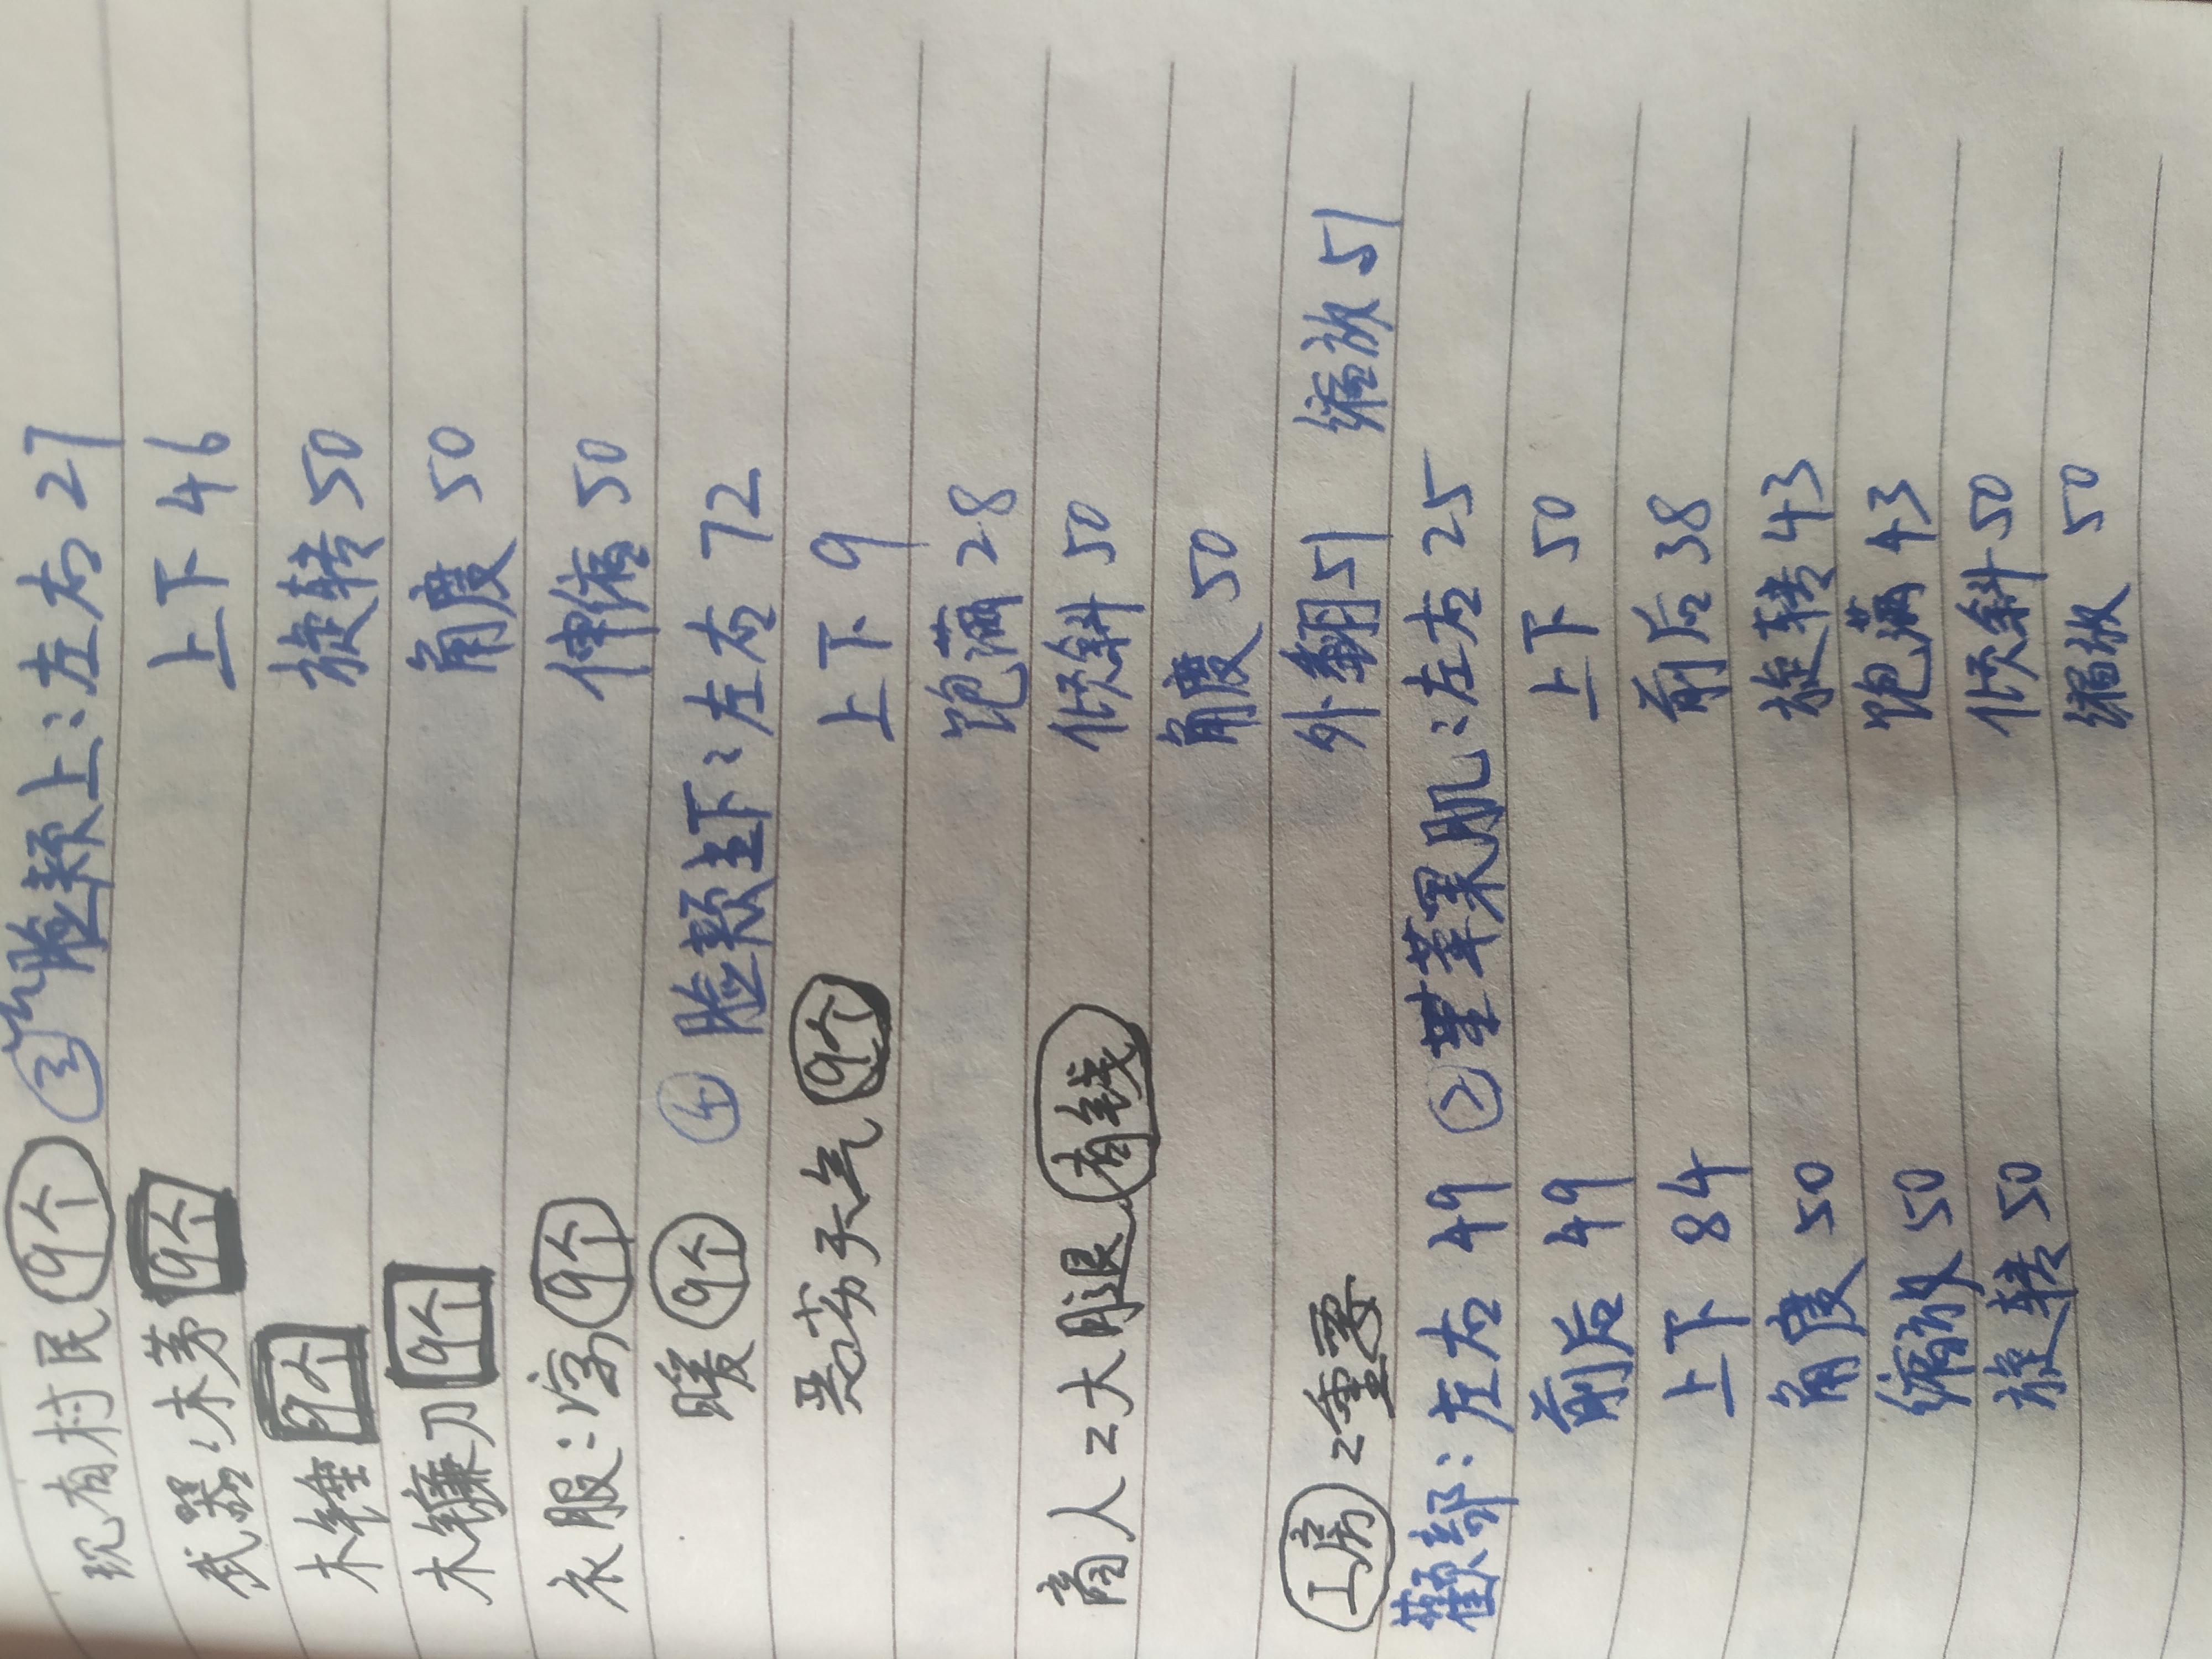 现有村民 9个 ③ 脸颊上：左右27
武器：木茅 9个 上下 46
木锤 9个 旋转 50
木镰刀 9个 角度 50
衣服：凉 9个 伸缩 50
暖 9个 ④ 脸颊下：左右 72
恶劣天气 9个 上下 9
饱满 28
商人=大腿 有钱 倾斜 50
角度 50
工房=重要 外翻51 缩放 51
颧部：左右 49 ② 苹果肌：左右 25
前后 49 上下 50
上下 84 前后 38
角度 50 旋转 43
缩放 50 饱满 43
旋转 50 倾斜 50
缩放 50